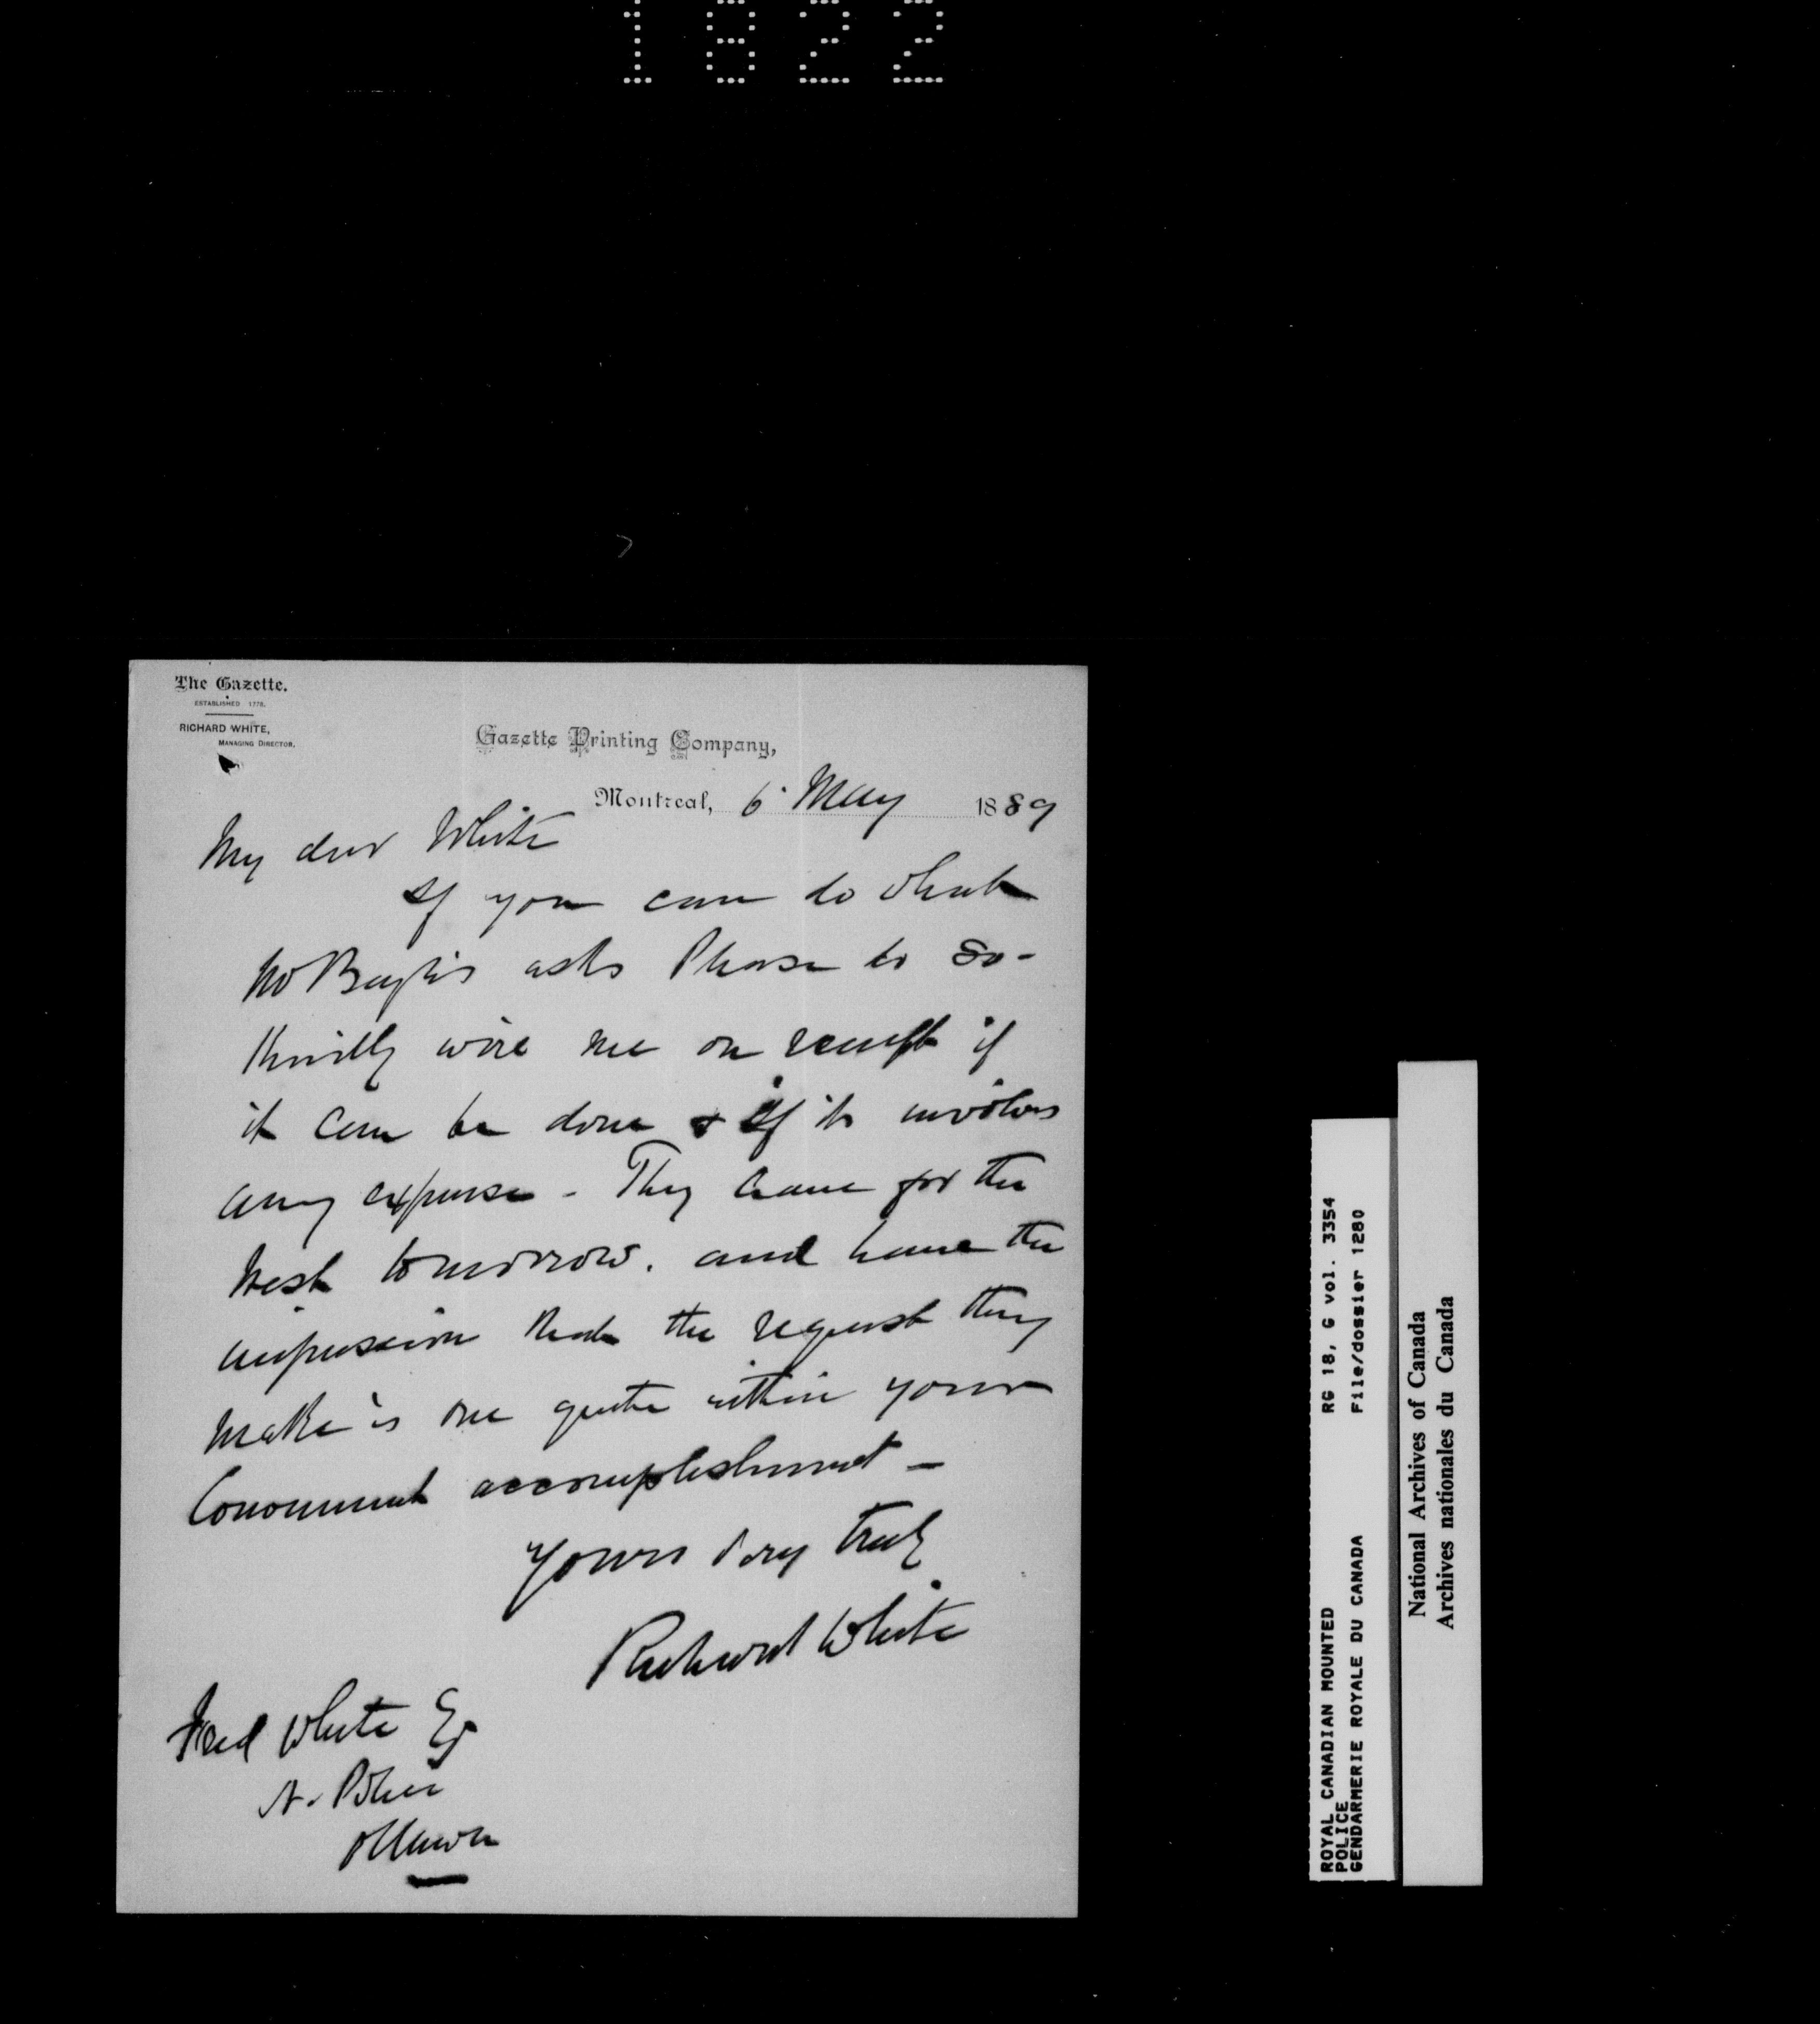 1822
The Gazette.
ESTABLISHED 1778.
RICHARD WHITE,
MANAGING DIRECTOR.
Gazette Printing Company,
Montreal, 6 May 1889
My dear White
If you can do what
Mr Baylis asks Please do so -
Kindly wire me on receipt if
it can be done & if it involves
any expense - They leave for the
West tomorrow. and have the
impression that the request they
make is one quite within your
Convenient accomplishment -
Yours very truly
Richard White
Fred White Esq
N. Police
Ottawa
ROYAL CANADIAN MOUNTED RG 18, G vol. 3354
POLICE File/dossier 1280
GENDARMERIE ROYALE DU CANADA
National Archives of Canada
Archives nationales du Canada